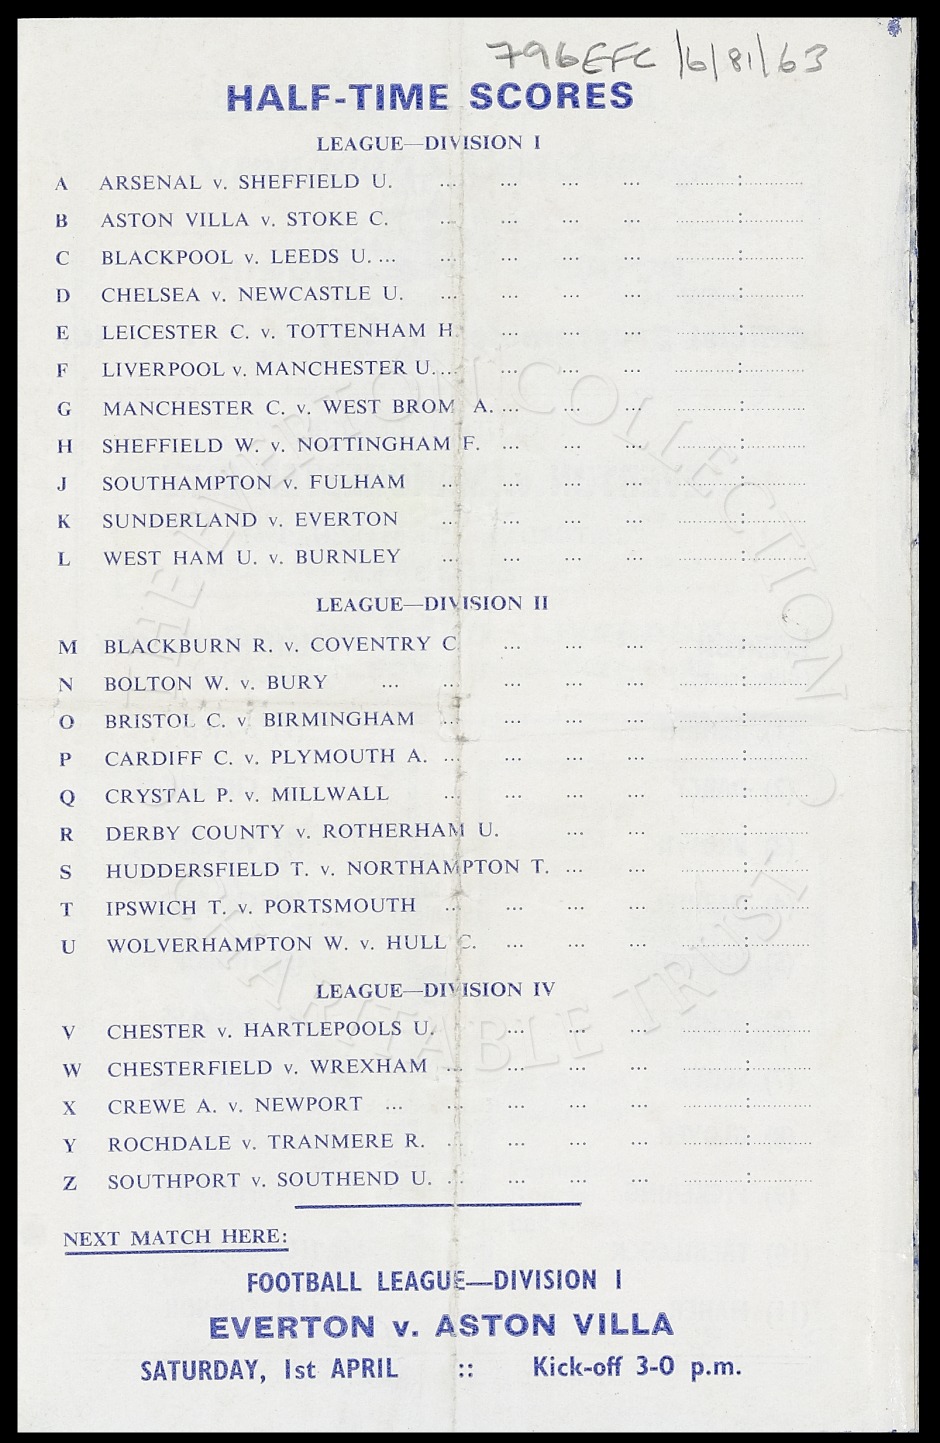 796EFC/6/81/63
HALF-TIME SCORES
LEAGUE—DIVISION I
A ARSENAL v. SHEFFIELD U. ... ... ... ... ............:............
B ASTON VILLA v. STOKE C. ... ... ... ... ............:............
C BLACKPOOL v. LEEDS U. ... ... ... ... ... ............:............
D CHELSEA v. NEWCASTLE U. ... ... ... ... ............:............
E LEICESTER C. v. TOTTENHAM H. ... ... ... ............:............
F LIVERPOOL v. MANCHESTER U. ... ... ... ... ............:............
G MANCHESTER C. v. WEST BROM A. ... ... ... ............:............
H SHEFFIELD W. v. NOTTINGHAM F. ... ... ... ............:............
J SOUTHAMPTON v. FULHAM ... ... ... ... ............:............
K SUNDERLAND v. EVERTON ... ... ... ... ............:............
L WEST HAM U. v. BURNLEY ... ... ... ... ............:............
LEAGUE—DIVISION II
M BLACKBURN R. v. COVENTRY C. ... ... ... ............:............
N BOLTON W. v. BURY ... ... ... ... ... ............:............
O BRISTOL C. v. BIRMINGHAM ... ... ... ... ............:............
P CARDIFF C. v. PLYMOUTH A. ... ... ... ... ............:............
Q CRYSTAL P. v. MILLWALL ... ... ... ... ............:............
R DERBY COUNTY v. ROTHERHAM U. ... ... ............:............
S HUDDERSFIELD T. v. NORTHAMPTON T. ... ... ............:............
T IPSWICH T. v. PORTSMOUTH ... ... ... ... ............:............
U WOLVERHAMPTON W. v. HULL C. ... ... ... ............:............
LEAGUE—DIVISION IV
V CHESTER v. HARTLEPOOLS U. ... ... ... ............:............
W CHESTERFIELD v. WREXHAM ... ... ... ... ............:............
X CREWE A. v. NEWPORT ... ... ... ... ... ............:............
Y ROCHDALE v. TRANMERE R. ... ... ... ... ............:............
Z SOUTHPORT v. SOUTHEND U. ... ... ... ... ............:............
NEXT MATCH HERE:
FOOTBALL LEAGUE—DIVISION I
EVERTON v. ASTON VILLA
SATURDAY, 1st APRIL :: Kick-off 3-0 p.m.
© THE EVERTON COLLECTION
CHARITABLE TRUST